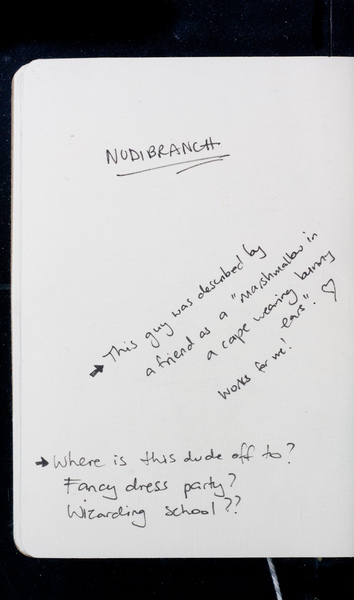 NUDIBRANCH
This guy was described by
a friend as a "marshmallow in
a cape wearing bunny
ears". ♡
Works for me!
Where is this dude off to?
Fancy dress party?
Wizarding school??